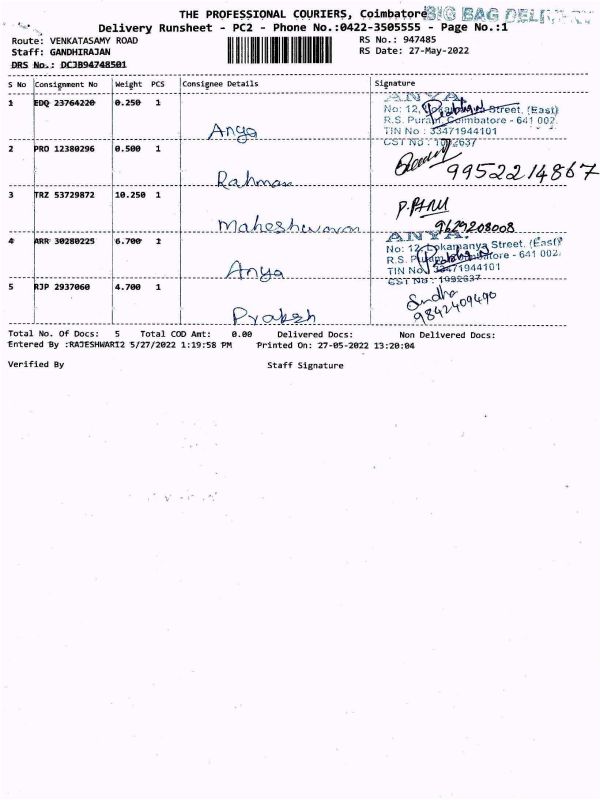 THE PROFESSIONAL COURIERS, Coimbatore BIG BAG DELIVERY
Delivery Runsheet - PC2 - Phone No.:0422-3505555 - Page No.:1
Route: VENKATASAMY ROAD RS No.: 947485
Staff: GANDHIRAJAN RS Date: 27-May-2022
DRS No.: DCJB94748501
S No Consignment No Weight PCS Consignee Details Signature
1 EDQ 23764220 0.250 1 Anya
ANYA.
No: 12, Lokamanya Street, (East)
R.S. Puram, Coimbatore - 641 002.
TIN No : 33471944101
CST No : 1092637
2 PRO 12380296 0.500 1 Rahman 9952214867
3 TRZ 53729872 10.250 1 Maheshwaran
9629208008
4 ARR 30280225 6.700 1 Anya
ANYA.
No: 12, Lokamanya Street, (East)
R.S. Puram, Coimbatore - 641 002.
TIN No : 33471944101
CST No : 1092637
5 RJP 2937060 4.700 1 Prakash Sundha
9842409490
Total No. Of Docs: 5 Total COD Amt: 0.00 Delivered Docs: Non Delivered Docs:
Entered By :RAJESHWARI2 5/27/2022 1:19:58 PM Printed On: 27-05-2022 13:20:04
Verified By Staff Signature